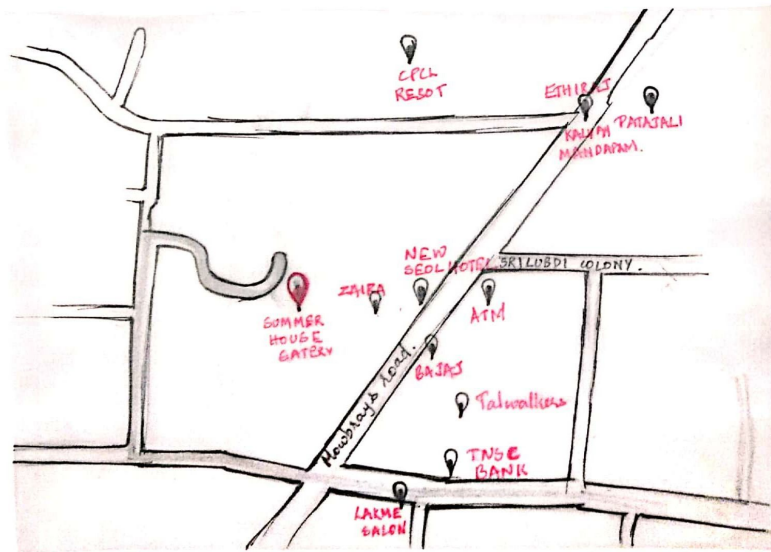 CPCL
RESOT
ETHIRAJ
KALYAN
MANDAPAM.
PATAJALI
NEW
SEOL HOTEL
SRILUBDI COLONY.
ZAIBA
ATM
SUMMER
HOUSE
EATERY
BAJAJ
Mowbrays Road.
Talwalkers
TNSC
BANK
LAKME
SALON